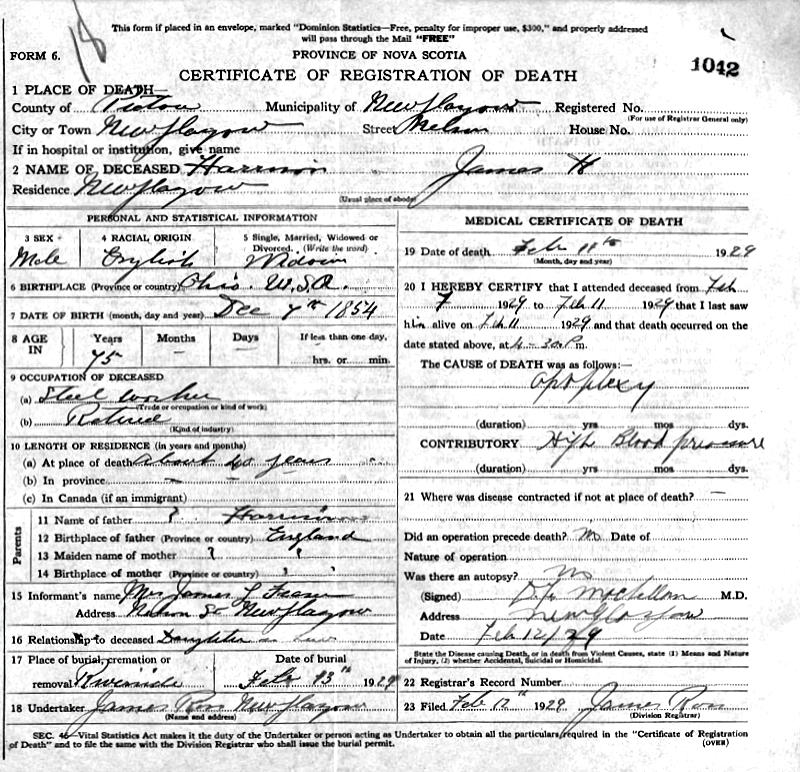 18
This form if placed in an envelope, marked "Dominion Statistics—Free, penalty for improper use, $300," and properly addressed
will pass through the Mail "FREE"
FORM 6. PROVINCE OF NOVA SCOTIA
CERTIFICATE OF REGISTRATION OF DEATH 1042
1 PLACE OF DEATH—
County of Pictou Municipality of New Glasgow Registered No.
(For use of Registrar General only)
City or Town New Glasgow Street Nelson House No.
If in hospital or institution, give name
2 NAME OF DECEASED Harrison James H
Residence New Glasgow
(Usual place of abode)
PERSONAL AND STATISTICAL INFORMATION
3 SEX 4 RACIAL ORIGIN 5 Single, Married, Widowed or
Divorced. (Write the word)
Male English Widower
6 BIRTHPLACE (Province or country) Ohio. U.S.A.
7 DATE OF BIRTH (month, day and year) Dec 7th 1854
8 AGE IN Years Months Days If less than one day,
75 — — hrs. or min.
9 OCCUPATION OF DECEASED
(a) Steel worker
(Trade or occupation or kind of work)
(b) Retired
(Kind of industry)
10 LENGTH OF RESIDENCE (in years and months)
(a) At place of death about 40 years
(b) In province —
(c) In Canada (if an immigrant)
Parents
11 Name of father ? Harrison
12 Birthplace of father (Province or country) England
13 Maiden name of mother ? "
14 Birthplace of mother (Province or country) ? "
15 Informant's name Mrs James Fraser
Address Nelson St New Glasgow
16 Relationship to deceased Daughter in law
17 Place of burial, cremation or Date of burial
removal Riverside Feb 13th 1929
18 Undertaker James Ross New Glasgow
(Name and address)
MEDICAL CERTIFICATE OF DEATH
19 Date of death Feb 11th 1929
(Month, day and year)
20 I HEREBY CERTIFY that I attended deceased from Feb
7 1929 to Feb 11 1929 that I last saw
him alive on Feb 11 1929 and that death occurred on the
date stated above, at 4-30 P.m.
The CAUSE OF DEATH was as follows:—
apoplexy
(duration) yrs mos dys.
CONTRIBUTORY High Blood pressure
(duration) yrs mos dys.
21 Where was disease contracted if not at place of death? —
Did an operation precede death? no Date of
Nature of operation
Was there an autopsy? no
(Signed) McClellan M.D.
Address New Glasgow
Date Feb 12/29
State the Disease causing Death, or in death from Violent Causes, state (1) Means and Nature
of Injury, (2) whether Accidental, Suicidal or Homicidal.
22 Registrar's Record Number
23 Filed Feb 12th 1929 James Ross
(Division Registrar)
SEC. 46—Vital Statistics Act makes it the duty of the Undertaker or person acting as Undertaker to obtain all the particulars required in the "Certificate of Registration
of Death" and to file the same with the Division Registrar who shall issue the burial permit. (OVER)